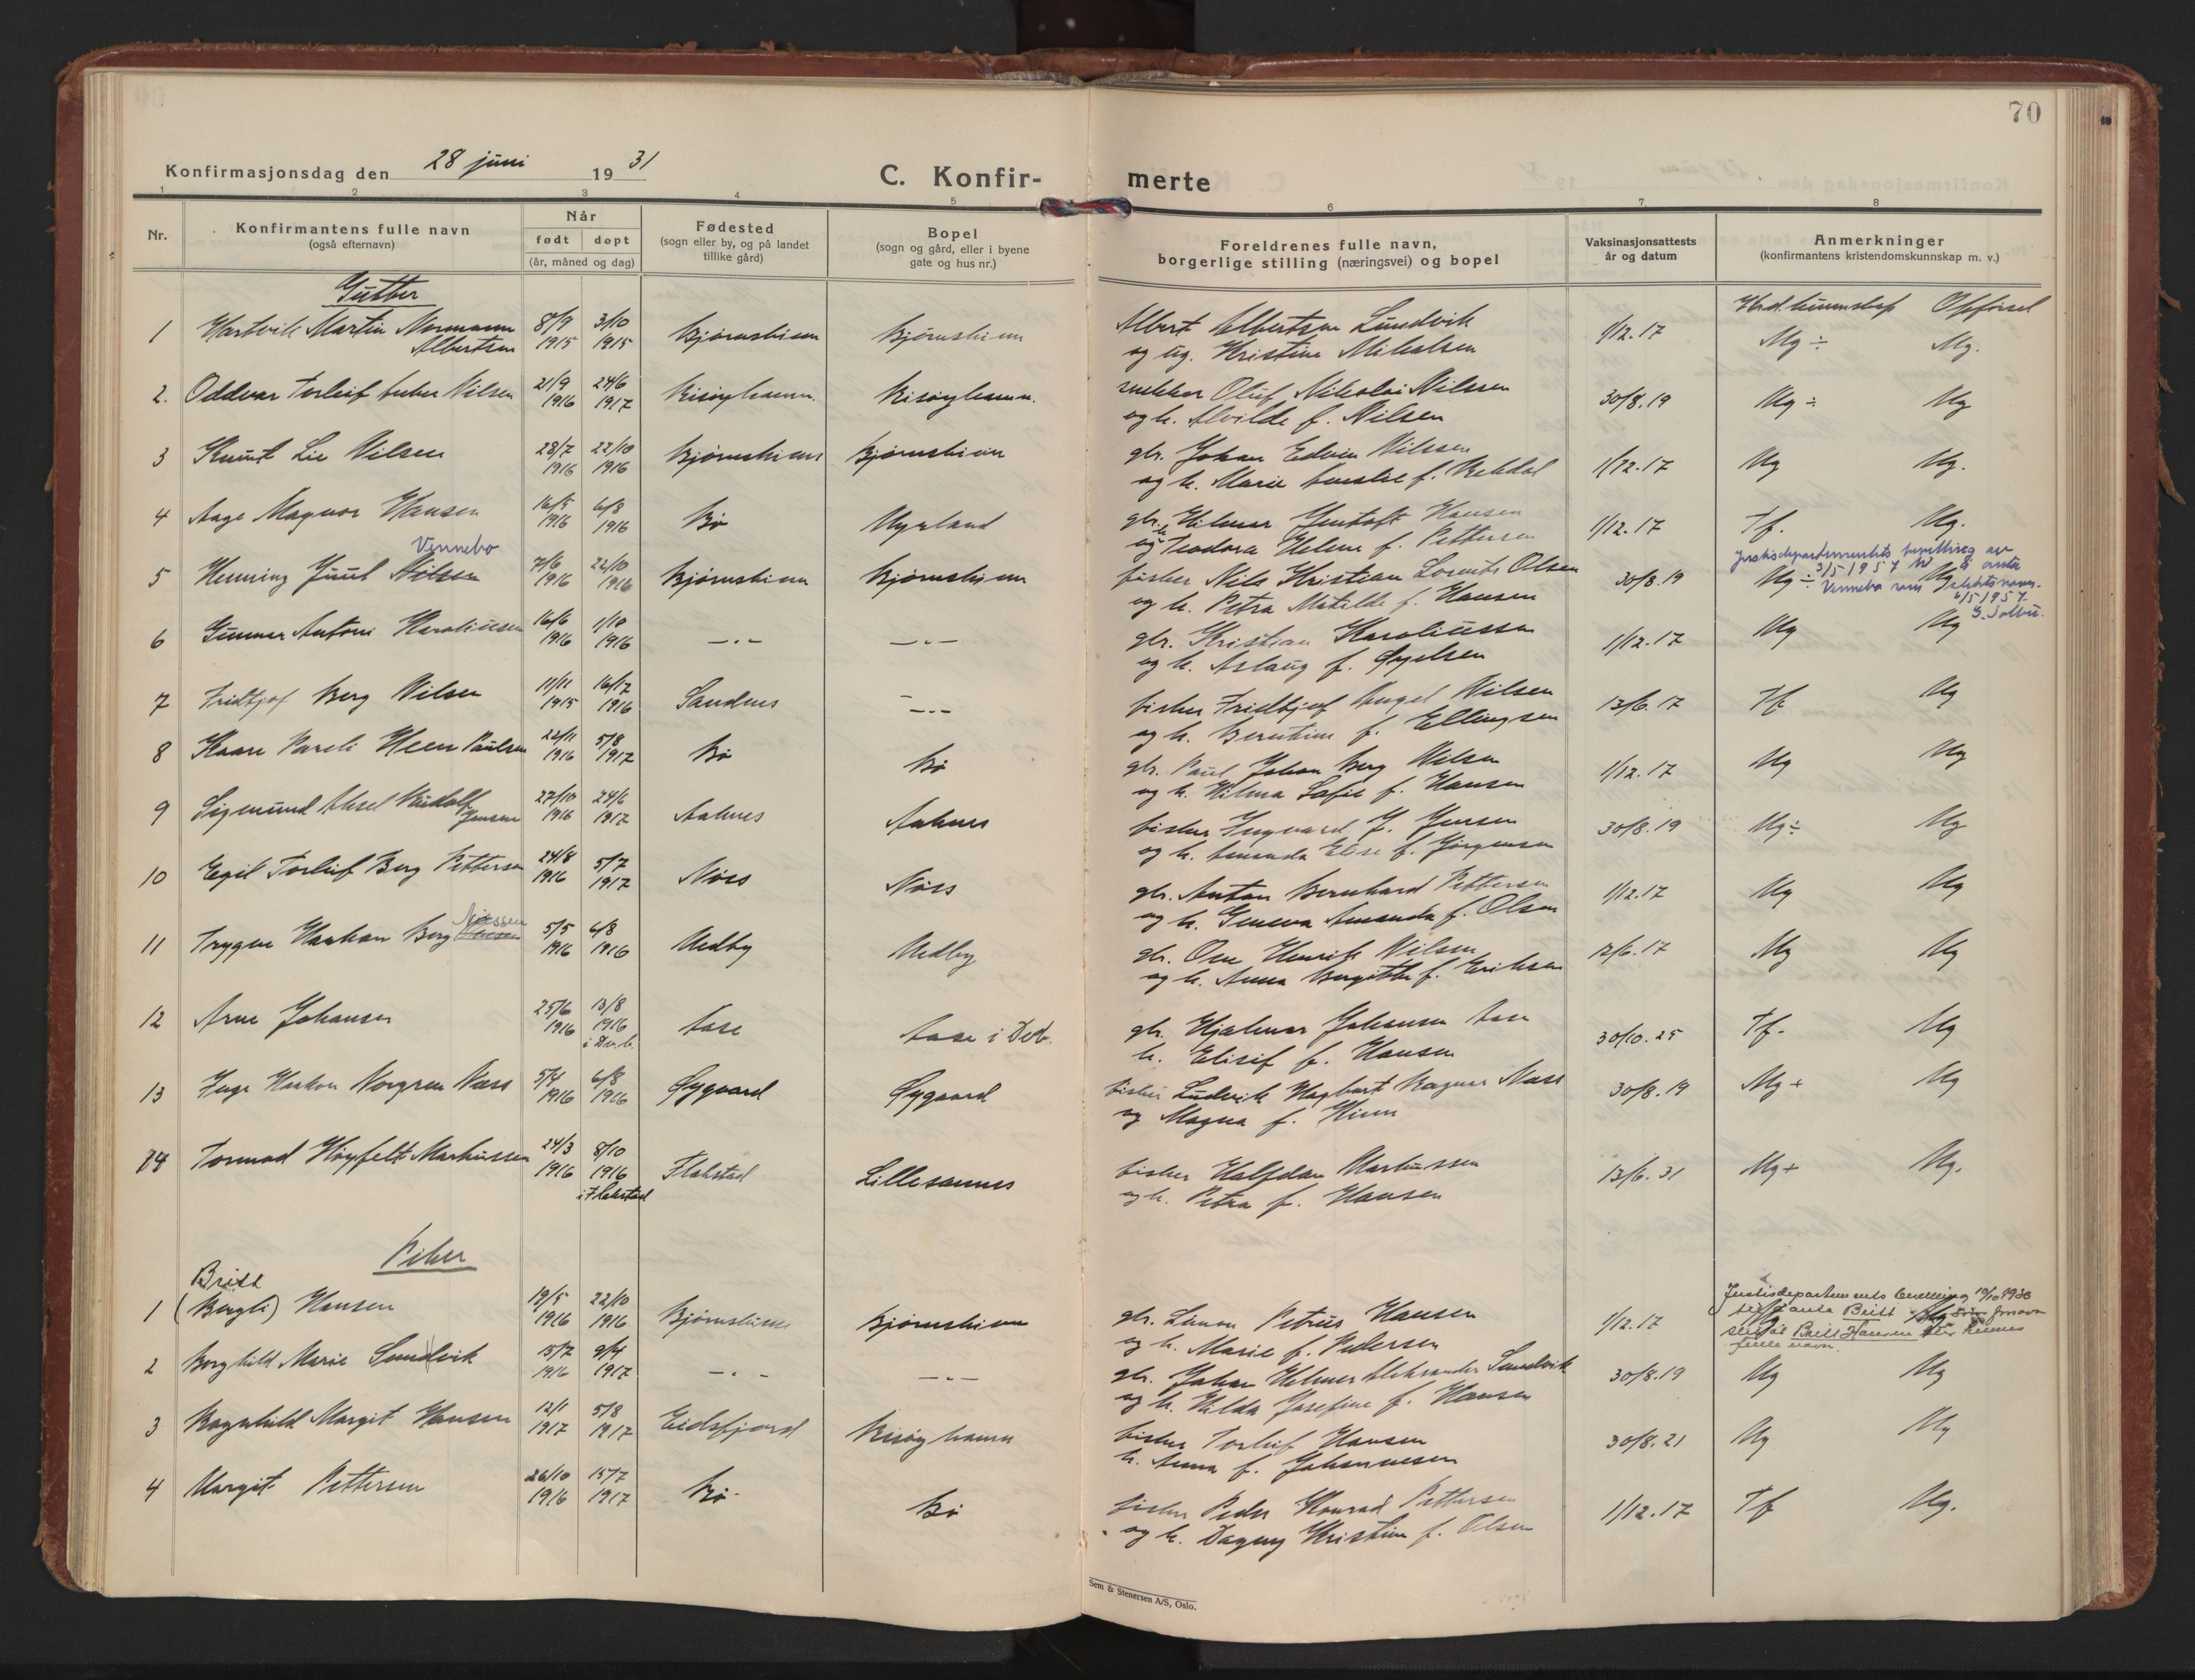 70
Konfirmasjonsdag den 28 juni 1931
C. Konfir- merte
1 2 3 4 5 6 7 8
Nr.
Konfirmantens fulle navn
(også efternavn)
Når
født døpt
(år, måned og dag)
Fødested
(sogn eller by, og på landet
tillike gård)
Bopel
(sogn og gård, eller i byene
gate og hus nr.)
Foreldrenes fulle navn,
borgerlige stilling (næringsvei) og bopel
Vaksinasjonsattests
år og datum
Anmerkninger
(konfirmantens kristendomskunnskap m. v.)
Gutter
Krd. kunnskap Opførsel
1 Hartvik Martin Normann 8/9 3/10 Bjørnskinn Bjørnskinn Albert Albertsen Lundvik 1/12.17 Mg ÷ Mg.
Albertsen 1915 1915 og ug. Kristine Mikalsen
2. Oddvar Torleif Nilsen 21/9 24/6 Risøyhamn. Risøyhamn. snekker Oluf Nikolai Nilssen 30/8.19 Mg ÷ Mg
1916 1917 og h. Alvilde f. Nilsen
3 Knut Lie Nilsen 28/7 22/10 Bjørnskinn Bjørnskinn gbr. Johan Edvin Nilssen 1/12.17 Mg Mg.
1916 1916 og h. Marie Amalie f.
4 Aage Magnor Hansen 16/5 6/8 Bø Myrland gbr. Hilmar Gustoft Hansen 1/12.17 Tf. Mg.
1916 1916 og h. Teodora Helene f. Pettersen
Vennebo
5 Henning Juul Nilsen 7/6 22/10 Bjørnskinn Bjørnskinn fisker Nils Kristian Lorents Olsen 30/8.19 Mg ÷ Mg
1916 1916 og h. Petra Matilde f. Hansen
Justisdepartementets bevilling av
3/5 1957 til å anta
Vennebo som slektsnavn.
6/5 1957.
6 Gunnar Antoni Karoliussen 16/6 1/10 —"— —"— gbr. Kristian Karoliussen 1/12.17 Mg Mg
1916 1916 og h. Aslaug f. Øyelsen
7 Fridtjof Berg Nilsen 11/11 16/7 Sandnes —"— fisker Fridtjof Angel Nilsen 13/6.17 Tf Mg
1915 1916 og h. Berntine f. Ellingsen
8 Kaare Pareli Heen Paulsen 22/11 5/8 Bø Bø gbr. Paul Johan Berg Nilsen 1/12.17 Mg Mg
1916 1917 og h. Hilma Sofie f. Hansen
9 Sigmund Aksel Rudolf 27/10 24/6 Aaknes Aaknes fisker Ingvard J. Jensen 30/8.19 Mg ÷ Mg
Jensen 1916 1917 og h. Amanda Elise f. Jørgensen
10 Egil Torleif Berg Pettersen 24/8 5/7 Nøss Nøss gbr. Anton Bernhard Pettersen 1/12.17 Mg Mg
1916 1917 og h. Geneva Amanda f. Olsen
11 Trygve Haakon Berg 5/5 6/8 Medby Medby gbr. Ove Henrik Nilsen 13/6.17 Mg Mg
1916 1916 og h. Anna Bergitte f. Eriksen
12 Arne Johansen 25/6 13/8 Aase Aase i Dvb. gbr. Hjalmar Johansen Aase 30/10.25 Tf. Mg
1916 1916 h. Elisif f. Hansen
13 Inge Haakon Norgren Næss 5/4 6/8 Øygaard Øygaard fisker Ludvik Hagbart Ragnar Næss 30/8.19 Mg + Mg
1916 1916 og Magna f. Kinn
14 Tormod Høyfelt Markussen 24/3 8/10 Flakstad Lillesannes fisker Halfdan Markussen 13/6.31 Mg + Mg.
1916 1916 og h. Petra f. Hansen
i Flakstad
Piker
Britt
1 (Bergli) Hansen 19/5 22/10 Bjørnskinn Bjørnskinn gbr. Simon Petrus Hansen 1/12.17 Mg Mg
1916 1916 og h. Marie f. Pedersen
Justisdepartements bevilling 19/10 1938
til å anta Britt fornavn
slik at Britt Hansen blir hennes
fulle navn.
2 Borghild Marie Sundvik 15/7 9/4 —"— —"— gbr. Johan Helmer Aleksander Sundvik 30/8.19 Mg Mg
1916 1917 og h. Hilda Josefine f. Hansen
3 Ragnhild Margit Hansen 12/1 5/8 Eidsfjord Risøyhamn fisker Torleif Hansen 30/8.21 Mg Mg
1917 1917 h. Anna f. Johannesen
4 Margit Pettersen 26/10 15/7 Bø Bø fisker Peder Konrad Pettersen 1/12.17 Tf Mg.
1916 1917 og h. Dagny Kristine f. Olsen
Sem & Stenersen A/S, Oslo.